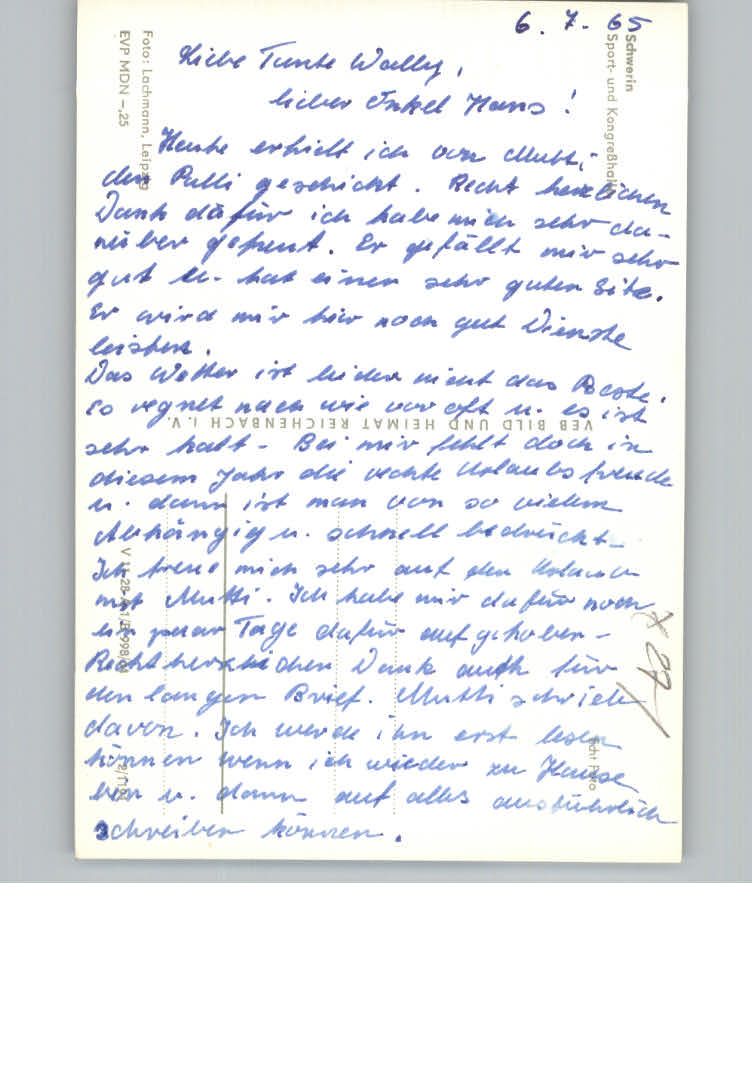 6. 7. 65
Liebe Tante Wally,
lieber Onkel Hans!
Heute erhielt ich von Mutti
den Pulli geschickt. Recht herzlichen
Dank dafür ich habe mich sehr da-
rüber gefreut. Er gefällt mir sehr
gut u. hat einen sehr guten Sitz.
Er wird mir hier noch gut Dienste
leisten.
Das Wetter ist leider nicht das Beste.
Es regnet nach wie vor oft u. es ist
sehr kalt. Bei mir fehlt doch in
diesem Jahr die rechte Urlaubsfreude
u. dann ist man von so vielem
Abhängig u. schnell bedrückt.
Ich freue mich sehr auf den Urlaub
mit Mutti. Ich habe mir dafür noch
ein paar Tage dafür aufgehoben.
Recht herzlichen Dank auch für
den langen Brief. Mutti schrieb
davon. Ich werde ihn erst lesen
können wenn ich wieder zu Hause
bin u. dann auf alles ausführlich
schreiben können.
Schwerin
Sport- und Kongreßhalle
Foto: Lachmann, Leipzig
EVP MDN -,25
VEB BILD UND HEIMAT REICHENBACH I. V.
Echt Foto